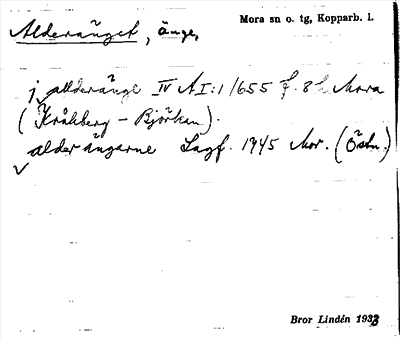 Alderänget, änge,
Mora sn o. tg, Kopparb. l.
j allderänge IV AI:1/655 f. 8 Mora
(Kråkberg - Björkan).
alderängarne Lagf. 1945 Mor. (Östn.)
Bror Lindén 1933